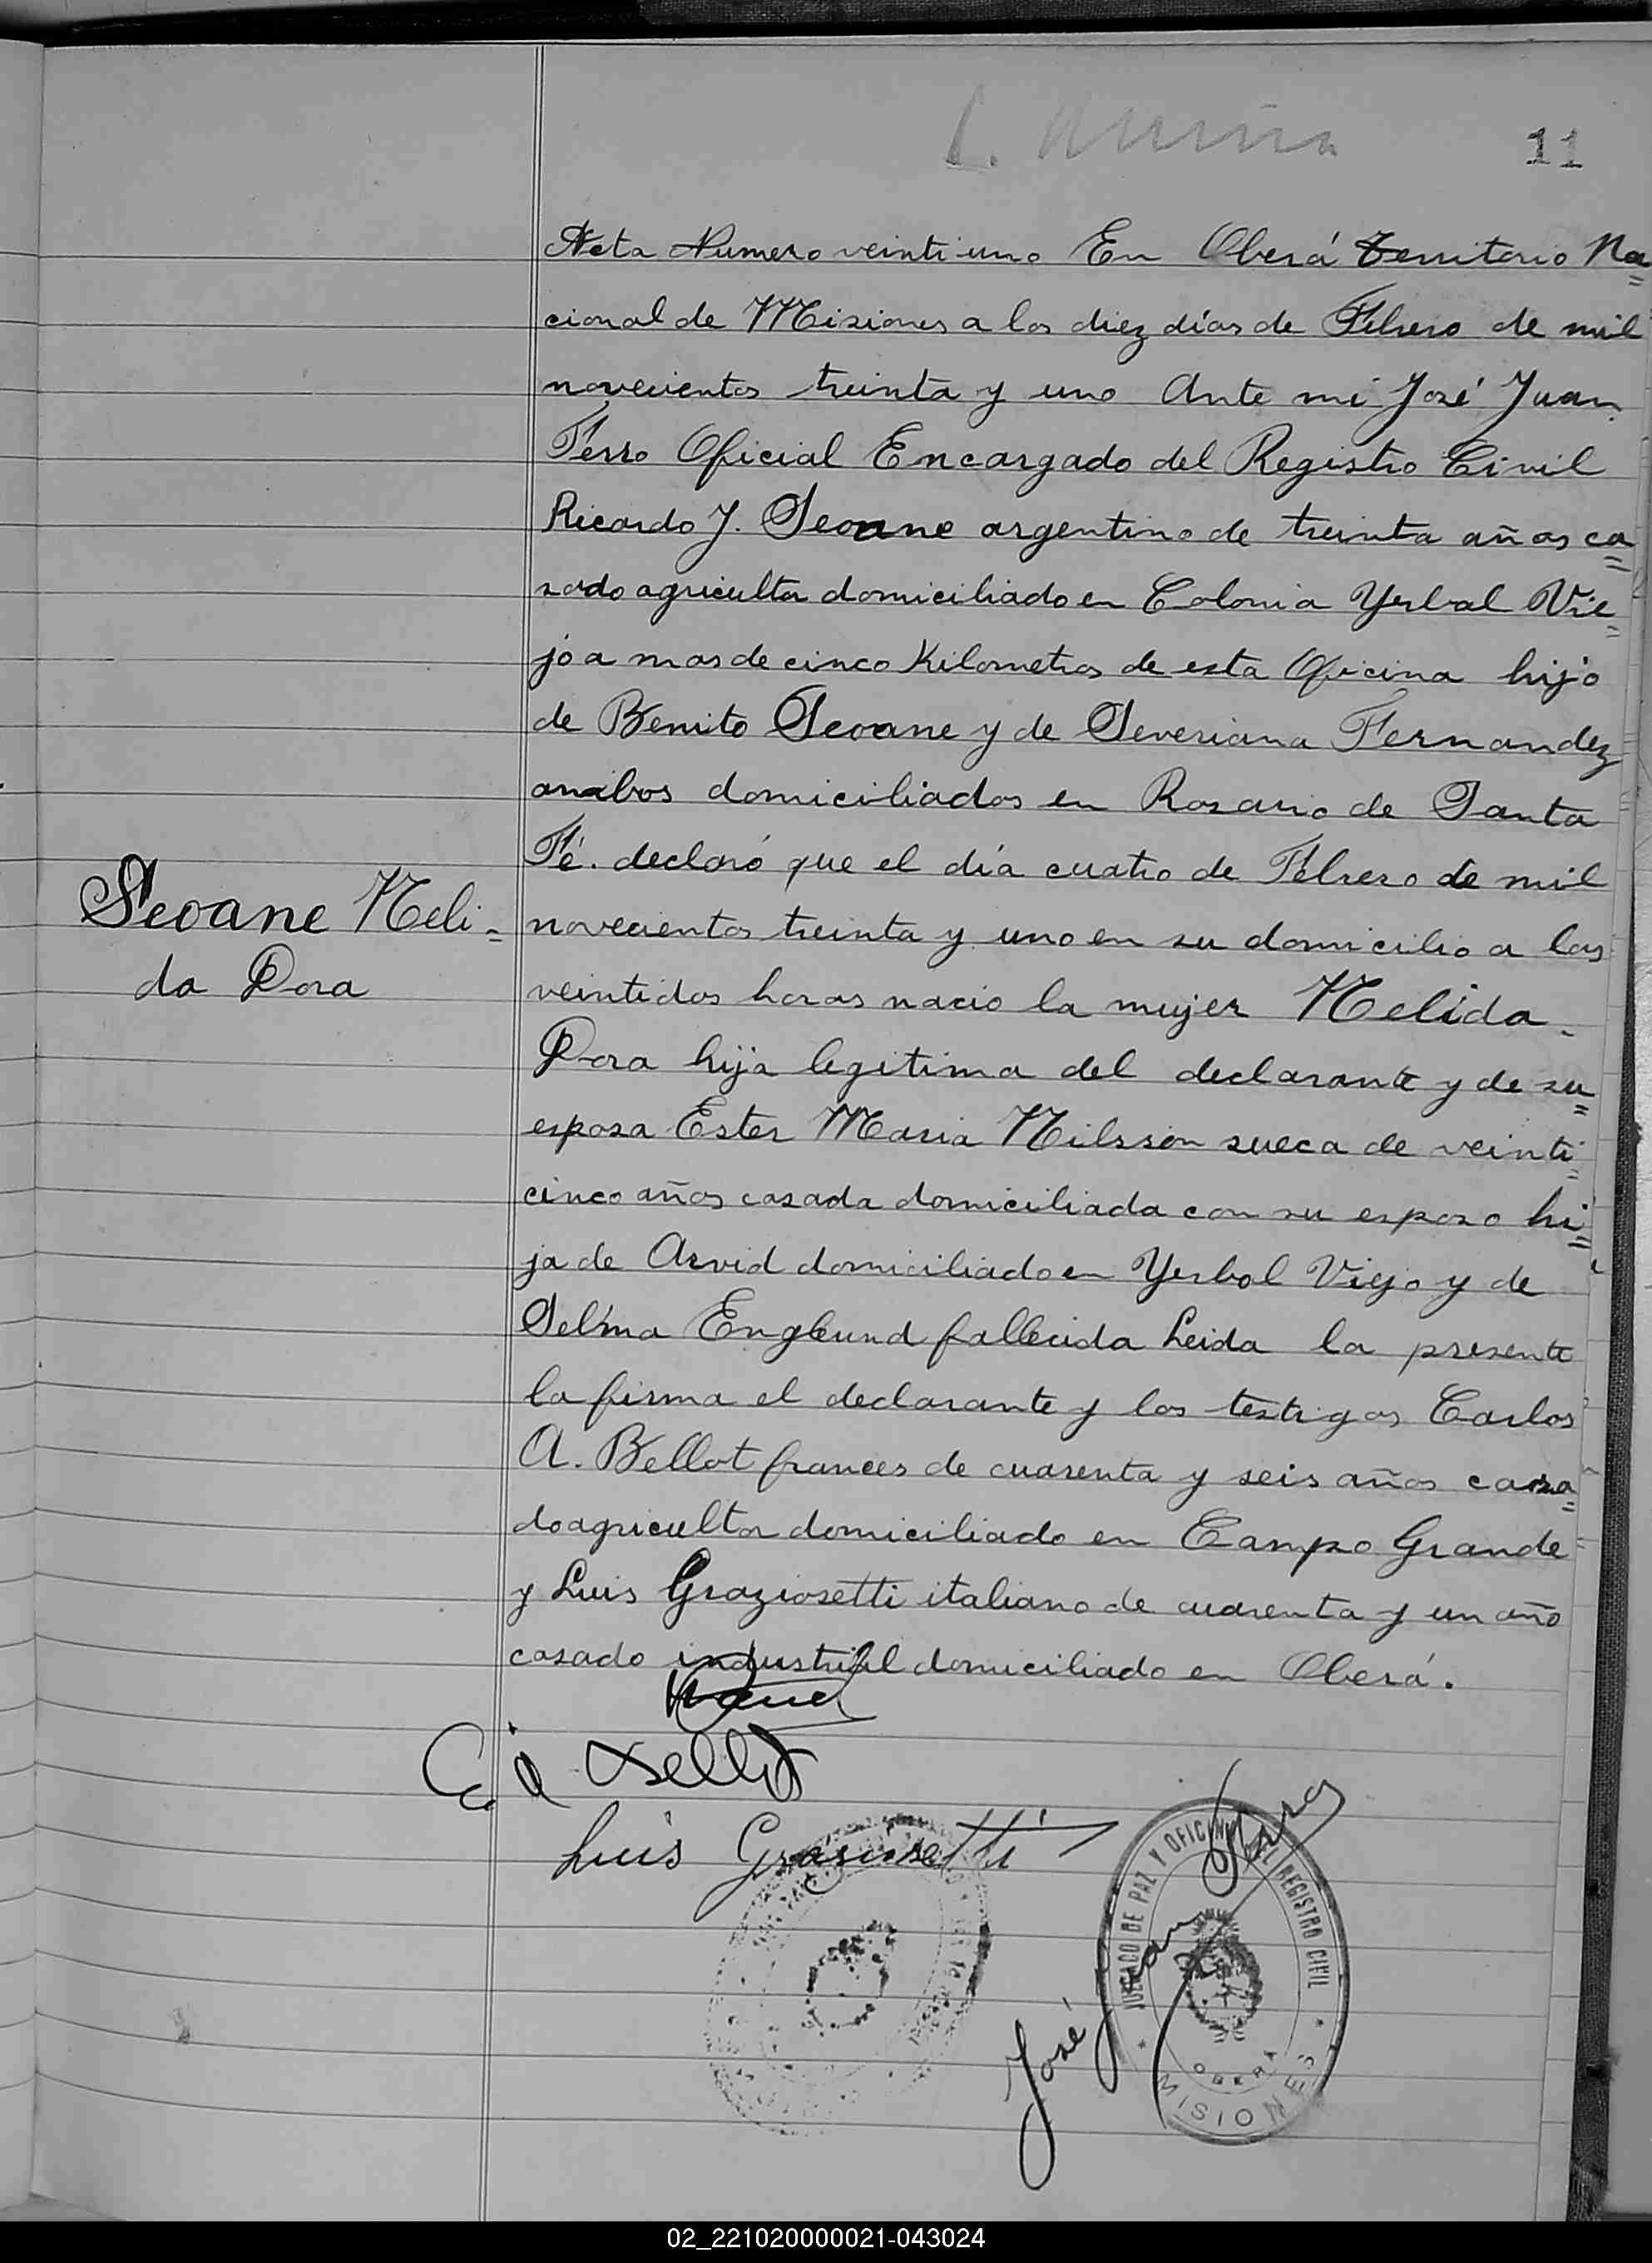 11
Acta Numero veintiuno En Oberá Territorio Na=
cional de Misiones a los diez días de Febrero de mil
novecientos treinta y uno Ante mi José Juan
Ferro Oficial Encargado del Registro Civil
Ricardo J. Seoane argentino de treinta años ca=
sado agricultor domiciliado en Colonia Yerbal Vie=
jo a mas de cinco Kilometros de esta Oficina hijo
de Benito Seoane y de Severiana Fernandez
ambos domiciliados en Rosario de Santa
Fé. declaró que el día cuatro de Febrero de mil
Seoane Neli=
da Dora
novecientos treinta y uno en su domicilio a las
veintidos horas nacio la mujer Nelida-
Dora hija legitima del declarante y de su=
esposa Ester Maria Nilsson sueca de veinti=
cinco años casada domiciliada con su esposo hi=
ja de Arvid domiciliado en Yerbal Viejo y de
Selma Englund fallecida Leida la presente
la firma el declarante y los testigos Carlos
A. Bellot frances de cuarenta y seis años casa=
do agricultor domiciliado en Campo Grande
y Luis Graziosetti italiano de cuarenta y un año
casado industrial domiciliado en Oberá.
C. A. Bellot
Luis Graziosetti
José Juan Ferro
JUZGADO DE PAZ Y OFICINA DEL REGISTRO CIVIL
OBERA
MISIONES
02_221020000021-043024